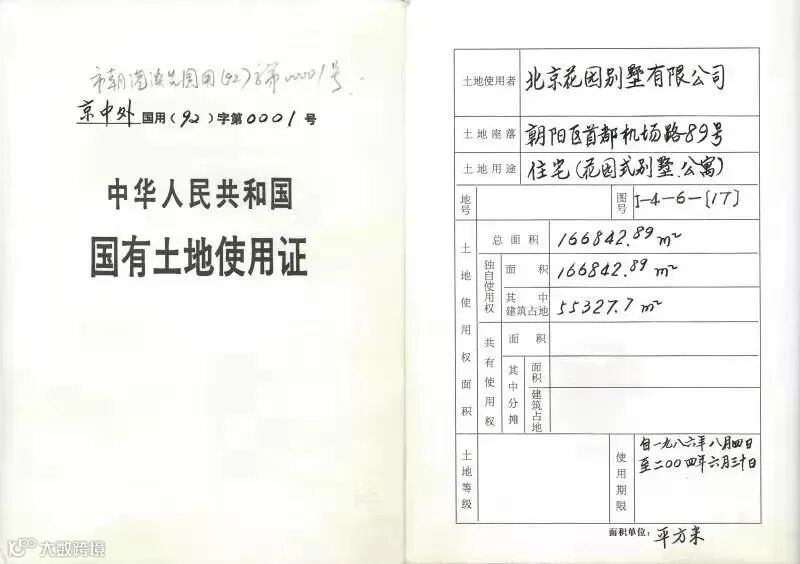 市朝港澳台国用(92)字第00001号
京中外国用(92)字第0001号
中华人民共和国
国有土地使用证
土地使用者 北京花园别墅有限公司
土地座落 朝阳区首都机场路89号
土地用途 住宅(花园式别墅.公寓)
地号 图号 I-4-6-[17]
土地使用权面积
总面积 166842.89m²
独自使用权 面积 166842.89m²
其中建筑占地 55327.7m²
共有使用权 面积
其中分摊 面积
建筑占地
土地等级 使用期限 自一九八六年八月四日
至二00四年六月三十日
面积单位: 平方米
100 大数跨境